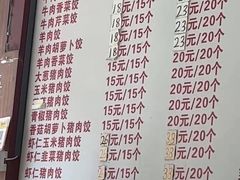 牛肉香菜饺 18元/15个 23元/20个
牛肉芹菜饺 18元/15个 23元/20个
羊肉饺 18元/15个 23元/20个
羊肉胡萝卜饺 18元/15个 23元/20个
羊肉香菜饺 15元/15个 20元/20个
大葱猪肉饺 15元/15个 20元/20个
玉米猪肉饺 15元/15个 20元/20个
猪肉饺 15元/15个 20元/20个
青椒猪肉饺 15元/15个 20元/20个
香菇胡萝卜猪肉饺 15元/15个 20元/20个
虾仁玉米猪肉饺 元/15个 33元/20个
虾仁韭菜猪肉饺 元/15个 33元/20个
虾仁 猪肉饺 元/15个 元/20个